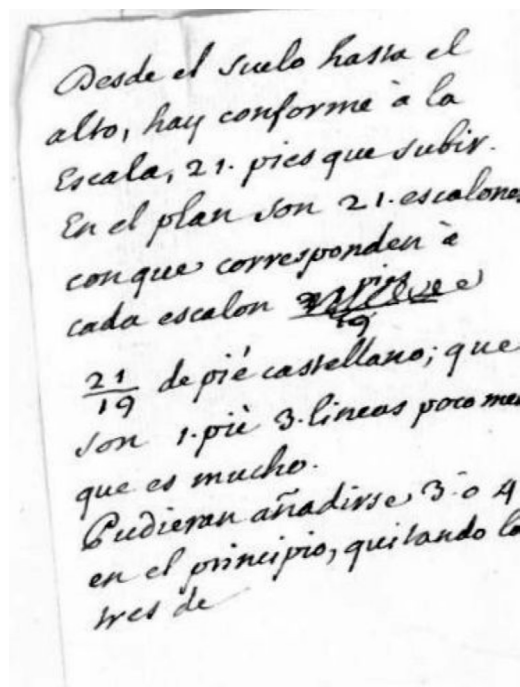 Desde el suelo hasta el
alto, hay conforme à la
Escala, 21. pies que subir.
En el plan son 21. escalones
con que corresponden à
cada escalon
19
21/19 de pié castellano; que
son 1. pié 3. lineas poco men
que es mucho.
Pudieran añadirse 3. ò 4
en el principio, quitando lo
tres de